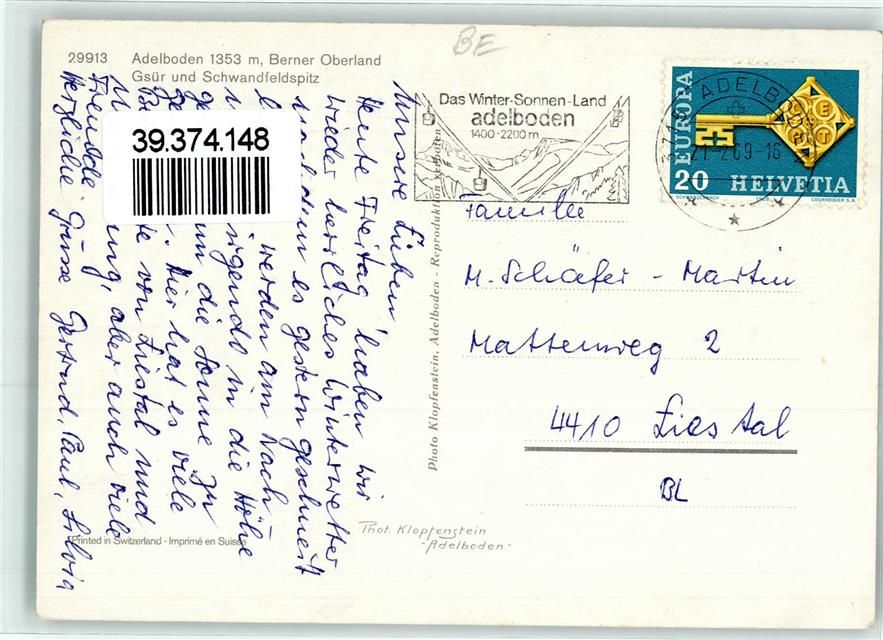 BE
29913 Adelboden 1353 m, Berner Oberland
Gsür und Schwandfeldspitz
39.374.148
Das Winter-Sonnen-Land
adelboden
1400-2200 m
3715 ADELBODEN
21.2.69-16
EUROPA
CEPT
20 HELVETIA
COURVOISIER S.A.
Familie
M. Schäfer - Martin
Mattenweg 2
4410 Liestal
BL
Unsere Lieben
Heute Freitag haben wir
wieder herrliches Winterwetter
nachdem es gestern geschneit
werden am Nach-
nigends in die Höhe
um die Sonne zu
Hier hat es viele
von Liestal und
ung, aber auch viele
Fremde. 
Herzliche Grüsse Gertrud, Paul, Silvia
Photo Klopfenstein, Adelboden - Reproduktion verboten
Phot. Klopfenstein
-Adelboden-
Printed in Switzerland - Imprimé en Suisse